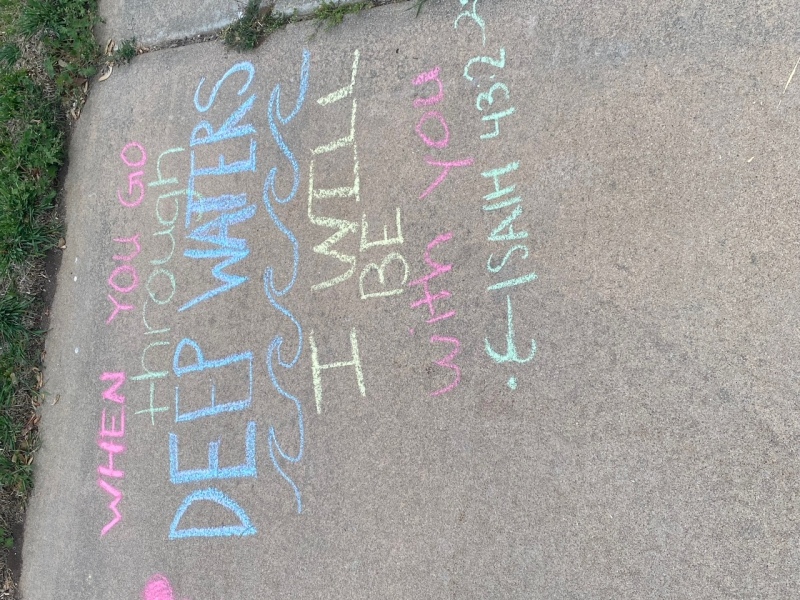 WHEN YOU GO
through
DEEP WATERS
I WILL
BE
with you
ISAIH 43:2